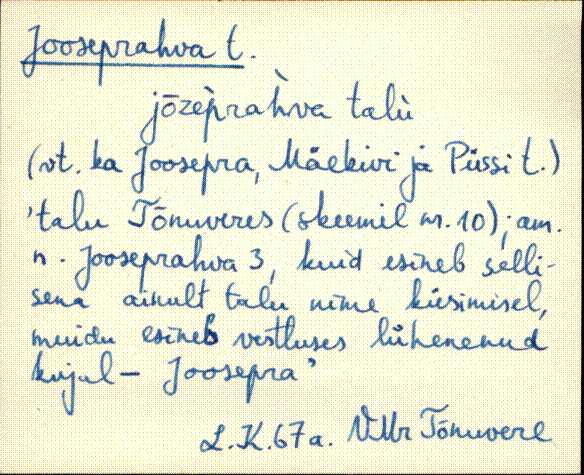 Jooseprahva t.
jōzèpràhva talù
(vt. ka Joosepra, Mäekivi ja Püssi t.)
'talu Tõnuveres (skeemil nr. 10); am.
n. Jooseprahva 3, kuid esineb selli-
sena ainult talu nime küsimisel,
muidu esineb vestluses lühenenud
kujul – Joosepra'
L.K.67a. VMr Tõnuvere